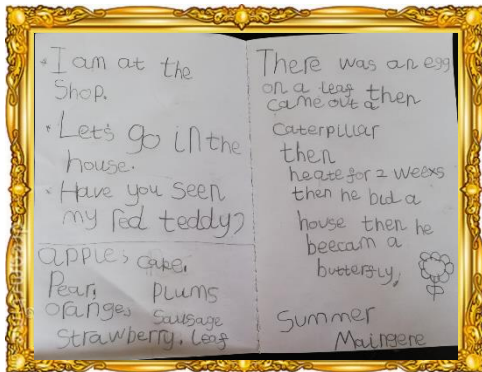 I am at the
Shop.
Let's go in the
house.
Have you seen
my red teddy?
apple, cake,
Pear, plums
oranges, sausage
Strawberry, leaf
There was an egg
on a leaf then
came out a
caterpillar
then
he ate for 2 weeks
then he buld a
house then he
beecam a
butterfly.
Summer
Maingere